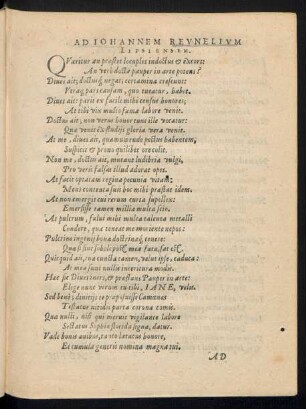 AD IOHANNEM REVNELIVM
Varicus an præstet locuples indoctus &
An verò doctæ pauper in arte potens?
Diues ait; doctusq; negat; certamina crescunt:
Vtraq; pars causam, quo tueatur, habet.
Diues ait: parit ex facili mihi census honores;
At tibi vix multo fama labore venit.
Doctus ait, non verus honor tunc ille vocatur:
Quà venit ex studijs gloria vera venit.
At me, diues ait, quamuis rude pectus habentem,
Suspicit & pronus quilibet ore colit.
Non me, doctus ait, mutant ludibria vulgi,
Pro veris falsum illud adorat opes.
At facit optatam regina pecunia vitam:
Mens contenta suo hoc mihi præstat idem.
At non emergit cui rerum curta supellex:
Emersisse tamen millia multa scio.
At pulcrum, fului mihi multa talenta metalli
Condere, quæ teneat me moriente nepos:
Pulcrius ingenij bona doctrinæq; tenere:
Quidquid ais, na cuncta tamen, velut ipse, caduca:
At mea sunt nullu interitura modo.
Hæc sic Diues iners, & præstans Pauper in arte:
Elige nunc verum tu tibi, IANE, velis.
Sed bene; diuitijs te præposuisse Camœnas
Testatur viridis parta corona comis.
Quæ nulli, nisi qui meruit vigilante labore
Sectatus Sophiæ florida signa, datur.
Vade bonis auibus, tanto lætatus honore,
Et cumula generis nomina magna tui.
AD